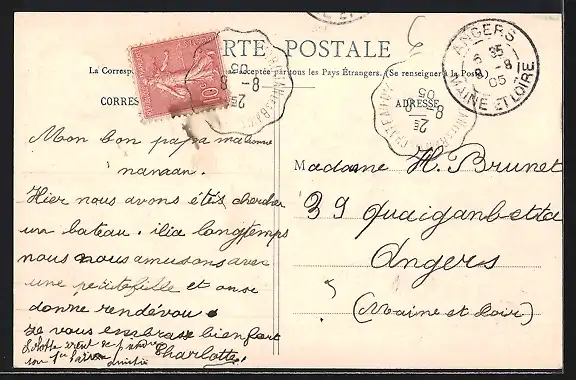 CARTE POSTALE
La Corresp acceptée par tous les Pays Étrangers. (Se renseigner à la Poste)
CORRES
ADRESSE
ANGERS
6 35
8 -8
05
MAINE ET LOIRE
2E
8 - 8
05
10
2E
8 - 8
05
Mon bon papa ma bonne
manaan.
Hier nous avons étés chercher
un bateau. il i a longtemps
nous nous amusons avec
une
et on se
donne rendévou.
Je vous embrasse bien fort
Charlotte.
Madame H. Brunet
39 quai ganbetta
Angers
(Maine et Loir)